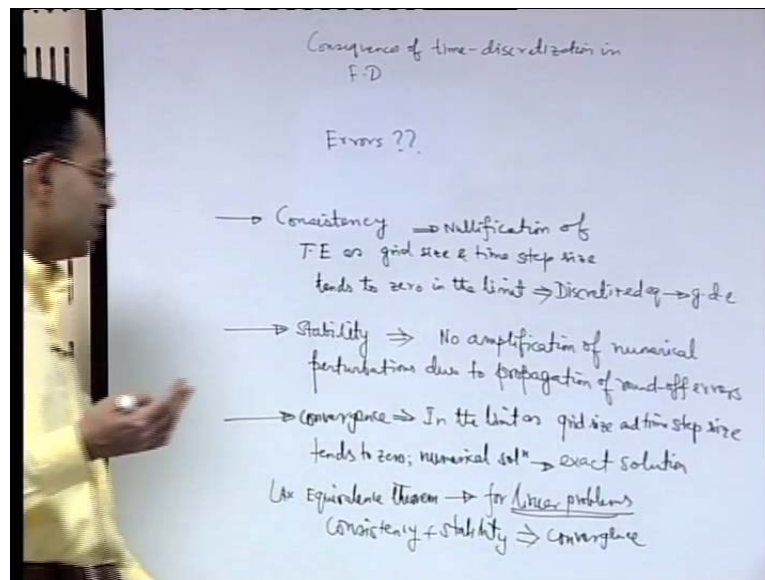 Consequence of time-discretization in
F.D
Errors ??.
→ Consistency ⇒ Nullification of
T.E as grid size & time step size
tends to zero in the limit ⇒ Discretized eq → g.d.e
→ Stability ⇒ No amplification of numerical
perturbations due to propagation of round-off errors
→ Convergence ⇒ In the limit as grid size ad time step size
tends to zero; numerical solⁿ → exact solution
Lax Equivalence theorem → for linear problems
Consistency + stability ⇒ convergence